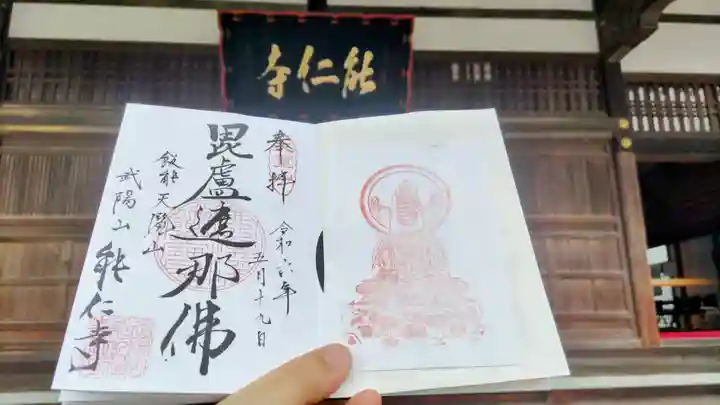 能仁寺
奉拝
令和六年
五月十九日
毘盧遮那佛
飯能天覧山
武陽山
能仁寺